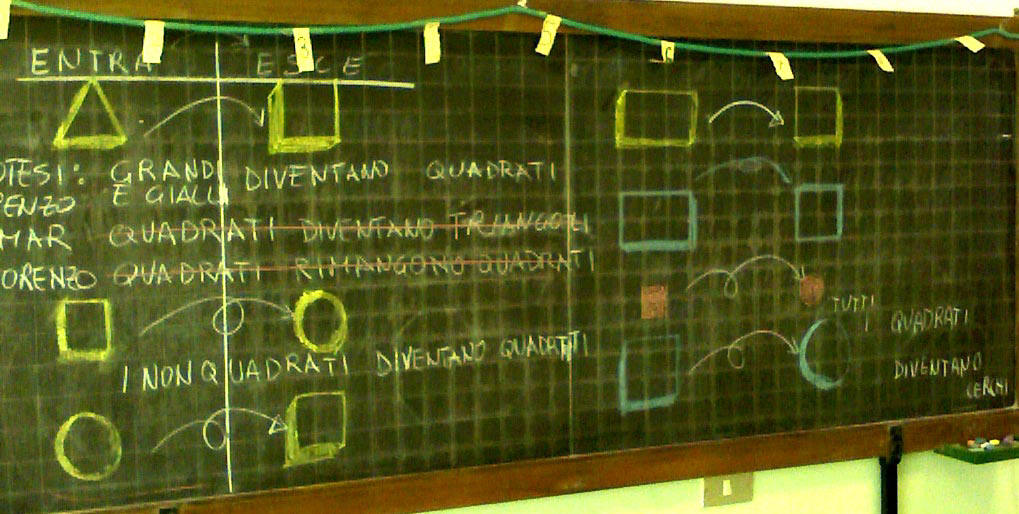 ENTRA ESCE
OTESI: GRANDI DIVENTANO QUADRATI
RENZO E GIALLI
MAR QUADRATI DIVENTANO TRIANGOLI
ORENZO QUADRATI RIMANGONO QUADRATI
I NON QUADRATI DIVENTANO QUADRATI
TUTTI
I QUADRATI
DIVENTANO
CERCHI